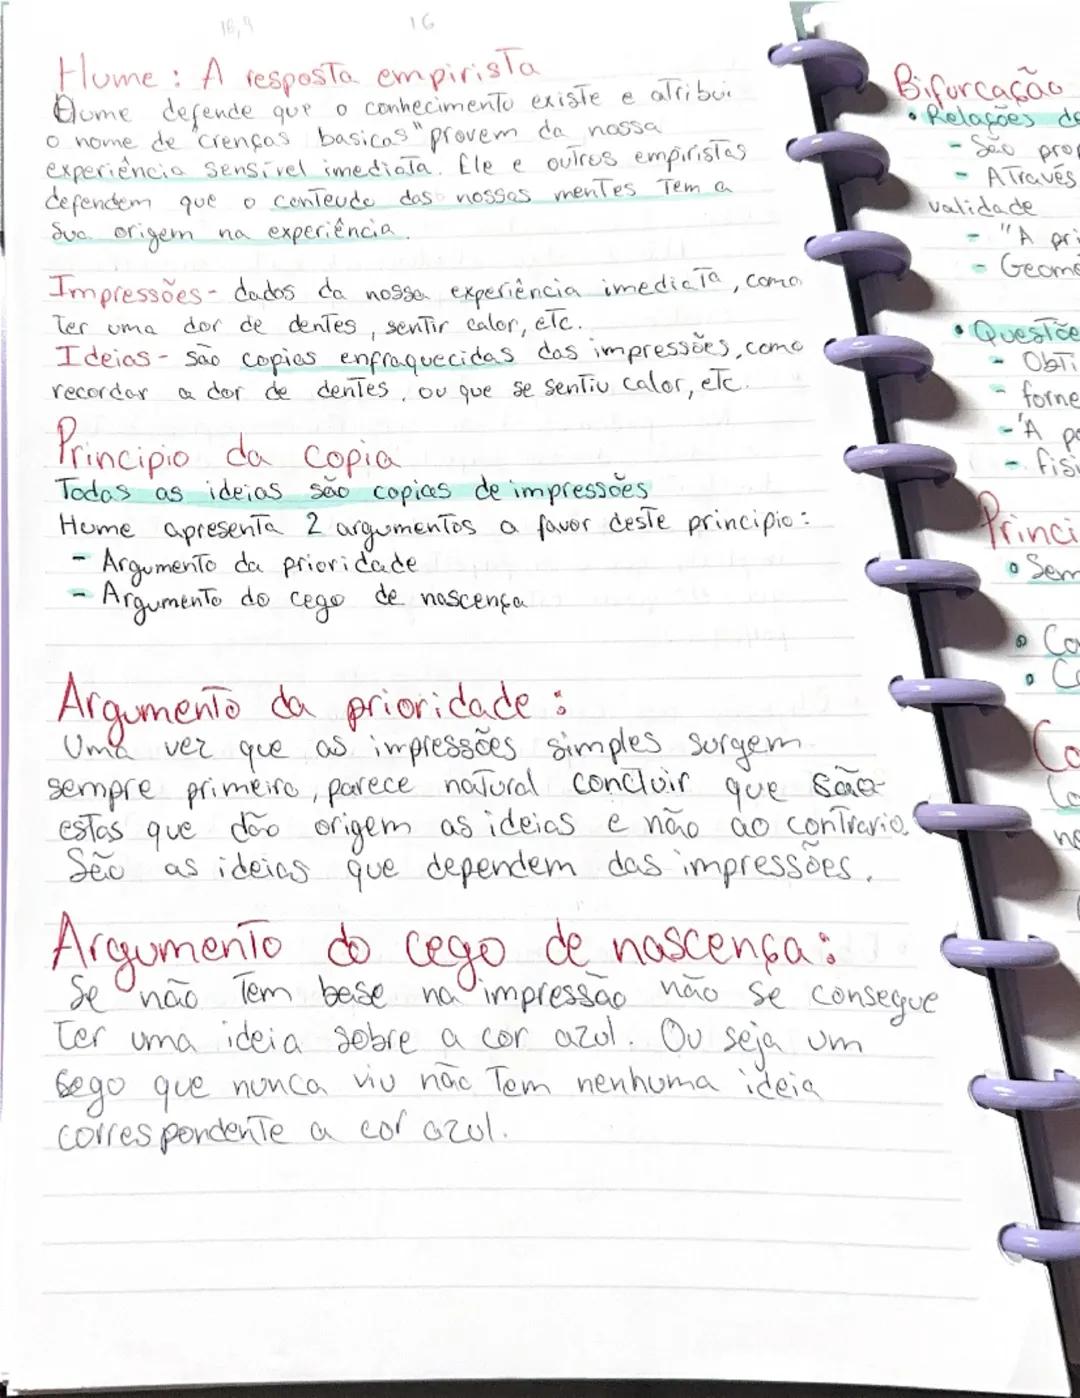 18,9 16
Hume: A resposta empirista
Hume defende que o conhecimento existe e atribui
o nome de "crenças basicas" provem da nossa
experiência sensível imediata. Ele e outros empiristas
defendem que o conteudo das nossas mentes tem a
sua origem na experiência.
Impressões - dados da nossa experiência imediata, como
ter uma dor de dentes, sentir calor, etc.
Ideias - são copias enfraquecidas das impressões, como
recordar a dor de dentes, ou que se sentiu calor, etc.
Principio da copia
Todas as ideias são copias de impressões
Hume apresenta 2 argumentos a favor deste principio:
- Argumento da prioridade
- Argumento do cego de nascença
Argumento da prioridade:
Uma vez que as impressões simples surgem
sempre primeiro, parece natural concluir que são
estas que dão origem as ideias e não ao contrario.
São as ideias que dependem das impressões.
Argumento do cego de nascença:
Se não tem base na impressão não se consegue
ter uma ideia sobre a cor azul. Ou seja um
cego que nunca viu não tem nenhuma ideia
correspondente a cor azul.
Bifurcação
• Relações de
- São prop
- Através
validade
- "A pri
- Geome
• Questõe
- Obti
- forne
- "A po
- fisi
Princi
• Sem
• Co
• Co
Co
Co
no